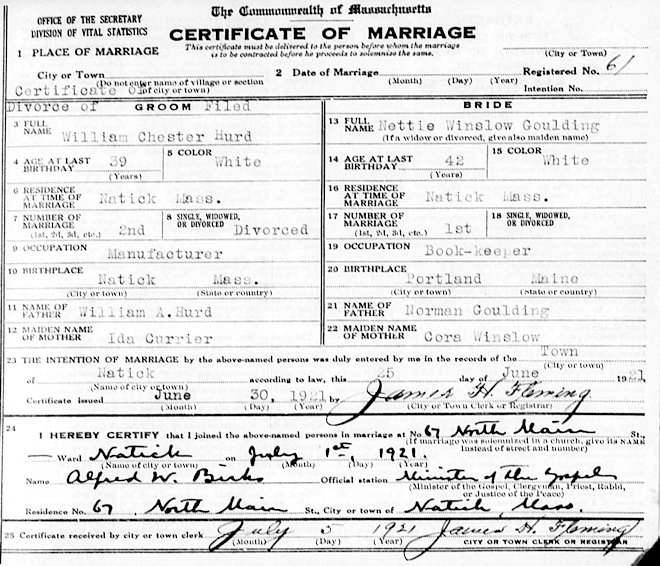 The Commonwealth of Massachusetts
OFFICE OF THE SECRETARY
DIVISION OF VITAL STATISTICS
CERTIFICATE OF MARRIAGE
This certificate must be delivered to the person before whom the marriage
is to be contracted before he proceeds to solemnize the same.
1 PLACE OF MARRIAGE
(City or Town)
City or Town
2 Date of Marriage
(Month) (Day) (Year)
Registered No. 61
(Do not enter name of village or section
of city or town)
Intention No.
Certificate of
Divorce of GROOM Filed
BRIDE
3 FULL NAME William Chester Hurd
13 FULL NAME Nettie Winslow Goulding
(If a widow or divorced, give also maiden name)
4 AGE AT LAST BIRTHDAY 39 (Years)
5 COLOR White
14 AGE AT LAST BIRTHDAY 42 (Years)
15 COLOR White
6 RESIDENCE AT TIME OF MARRIAGE Natick Mass.
16 RESIDENCE AT TIME OF MARRIAGE Natick Mass.
7 NUMBER OF MARRIAGE (1st, 2d, 3d, etc.) 2nd
8 SINGLE, WIDOWED, OR DIVORCED Divorced
17 NUMBER OF MARRIAGE (1st, 2d, 3d, etc.) 1st
18 SINGLE, WIDOWED, OR DIVORCED
9 OCCUPATION Manufacturer
19 OCCUPATION Book-keeper
10 BIRTHPLACE Natick Mass.
(City or town) (State or country)
20 BIRTHPLACE Portland Maine
(City or town) (State or country)
11 NAME OF FATHER William A.Hurd
21 NAME OF FATHER Norman Goulding
12 MAIDEN NAME OF MOTHER Ida Currier
22 MAIDEN NAME OF MOTHER Cora Winslow
23 THE INTENTION OF MARRIAGE by the above-named persons was duly entered by me in the records of the Town
(City or town)
of Natick according to law, this 25 day of June 1921,
(Name of city or town)
Certificate issued June 30, 1921 by James H. Fleming
(Month) (Day) (Year) (City or Town Clerk or Registrar)
24
I HEREBY CERTIFY that I joined the above-named persons in marriage at No. 67 North Main St.,
(If marriage was solemnized in a church, give its NAME
instead of street and number)
Ward Natick on July 1st, 1921.
(Name of city or town) (Month) (Day) (Year)
Name Alfred W. Birks Official station Minister of the Gospel
(Minister of the Gospel, Clergyman, Priest, Rabbi,
or Justice of the Peace)
Residence No. 67 North Main St., City or town of Natick, Mass.
25 Certificate received by city or town clerk July 5 1921 James H. Fleming
(Month) (Day) (Year) CITY OR TOWN CLERK OR REGISTRAR